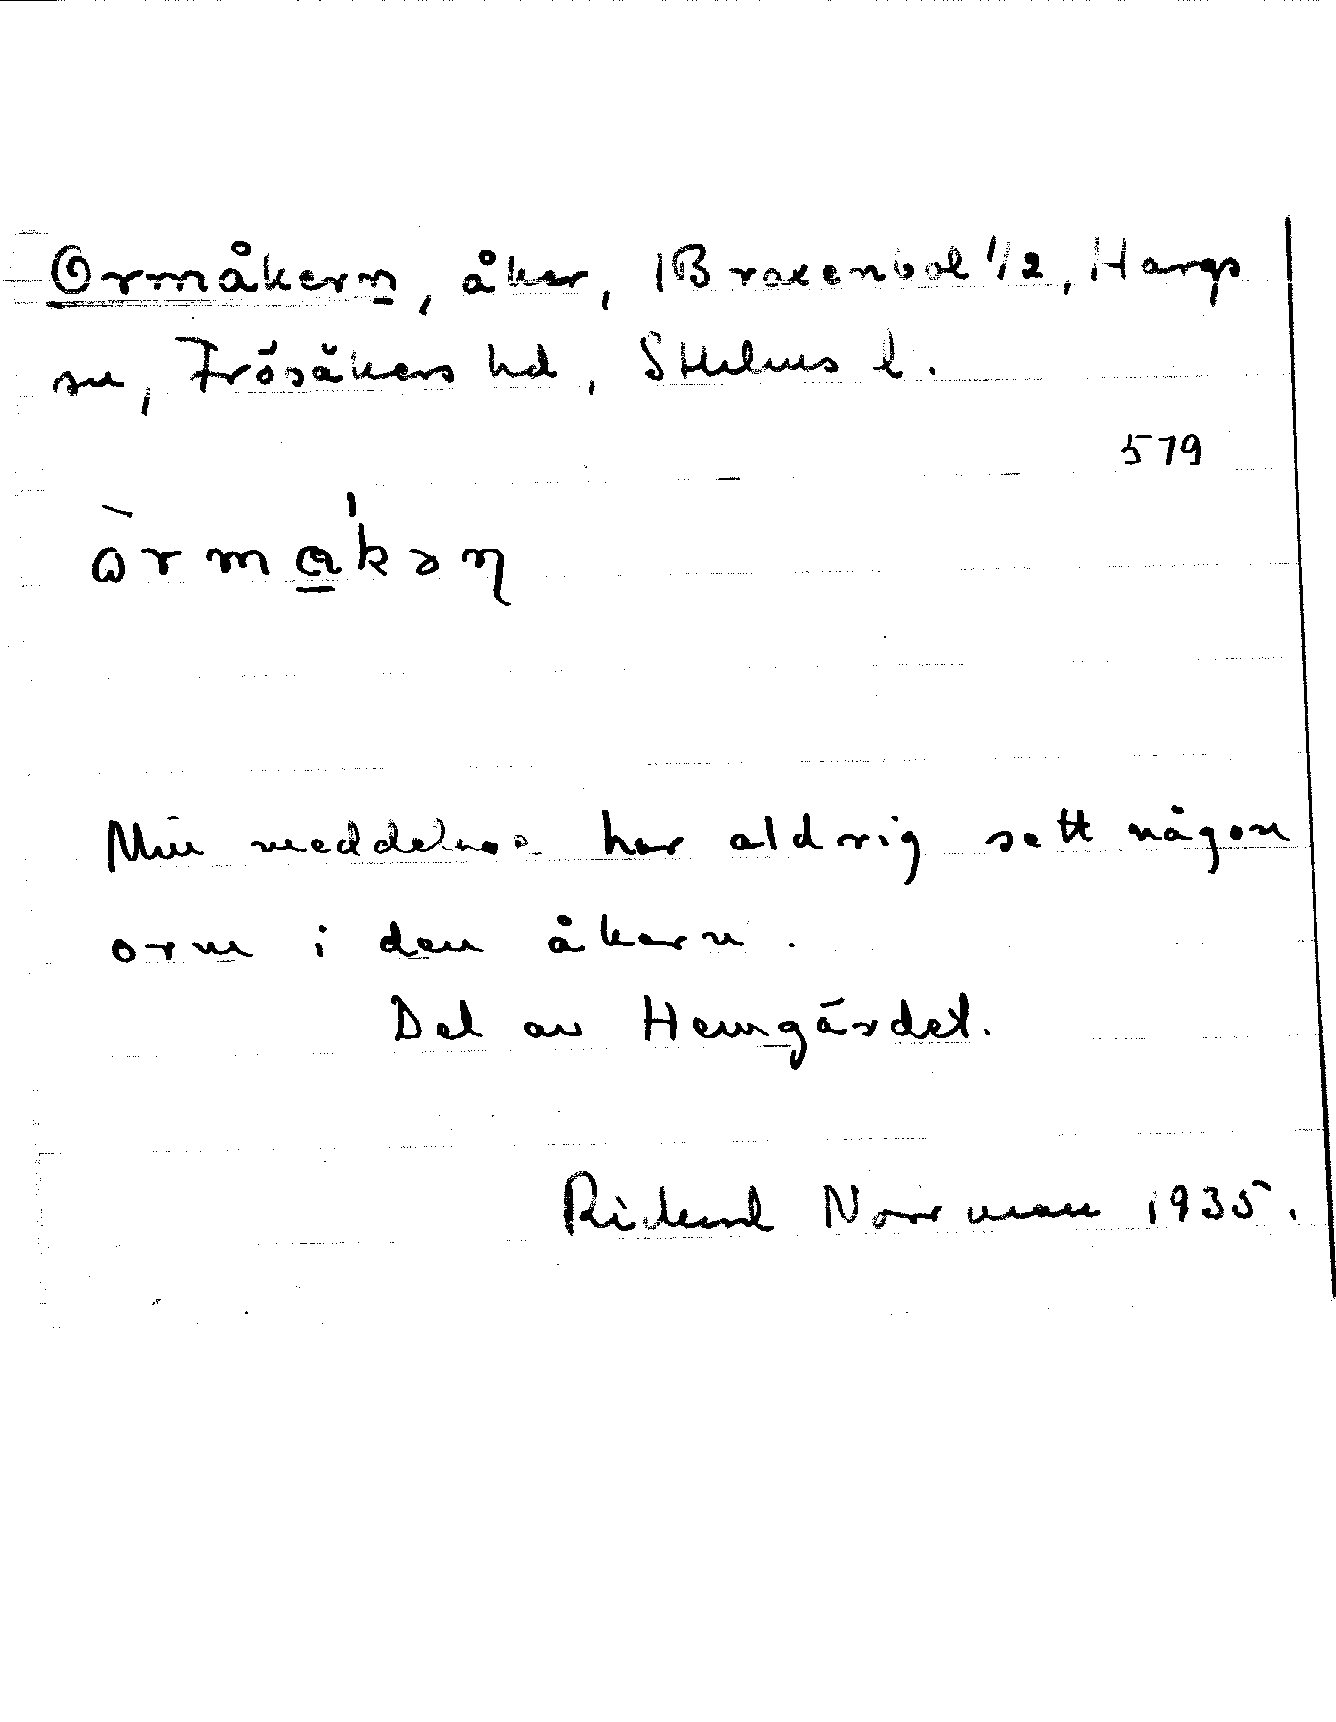 Ormåkern, åker, Braxenbol 1/2, Hargs
sn, Frösåkers hd, Sthlms l.
579
òrmak̍ən
Min meddelare har aldrig sett någon
orm i den åkern.
Del av Hemgärdet.
Rickard Norrman 1935.